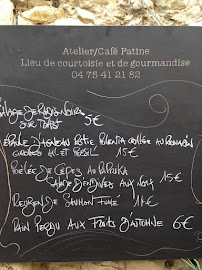 Atelier/Café Patine
Lieu de courtoisie et de gourmandise
04 75 41 21 82
de Radis Noirs
sur Toast 5€
d'Agneau Rôtie Polenta Grillée au Romarin
Ail et Persil 15€
Poêlée de Cèpes au Paprika
Salade d'Endives aux Noix 15€
de Saumon Fumé 14€
Pain Perdu aux Fruits d'Automne 6€